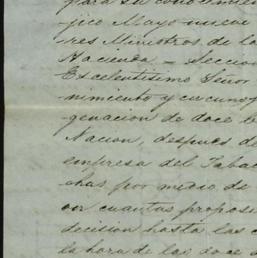 para su conocimie
jico Mayo nueve
res Ministros de la
Hacienda = Seccion
Escelentisimo Señor
nimiento y
genacion de doce
Nacion, despues de
empresa del Tabac
chas por medio de
cor cuantas propose
decision hasta las
la hora de las doce d